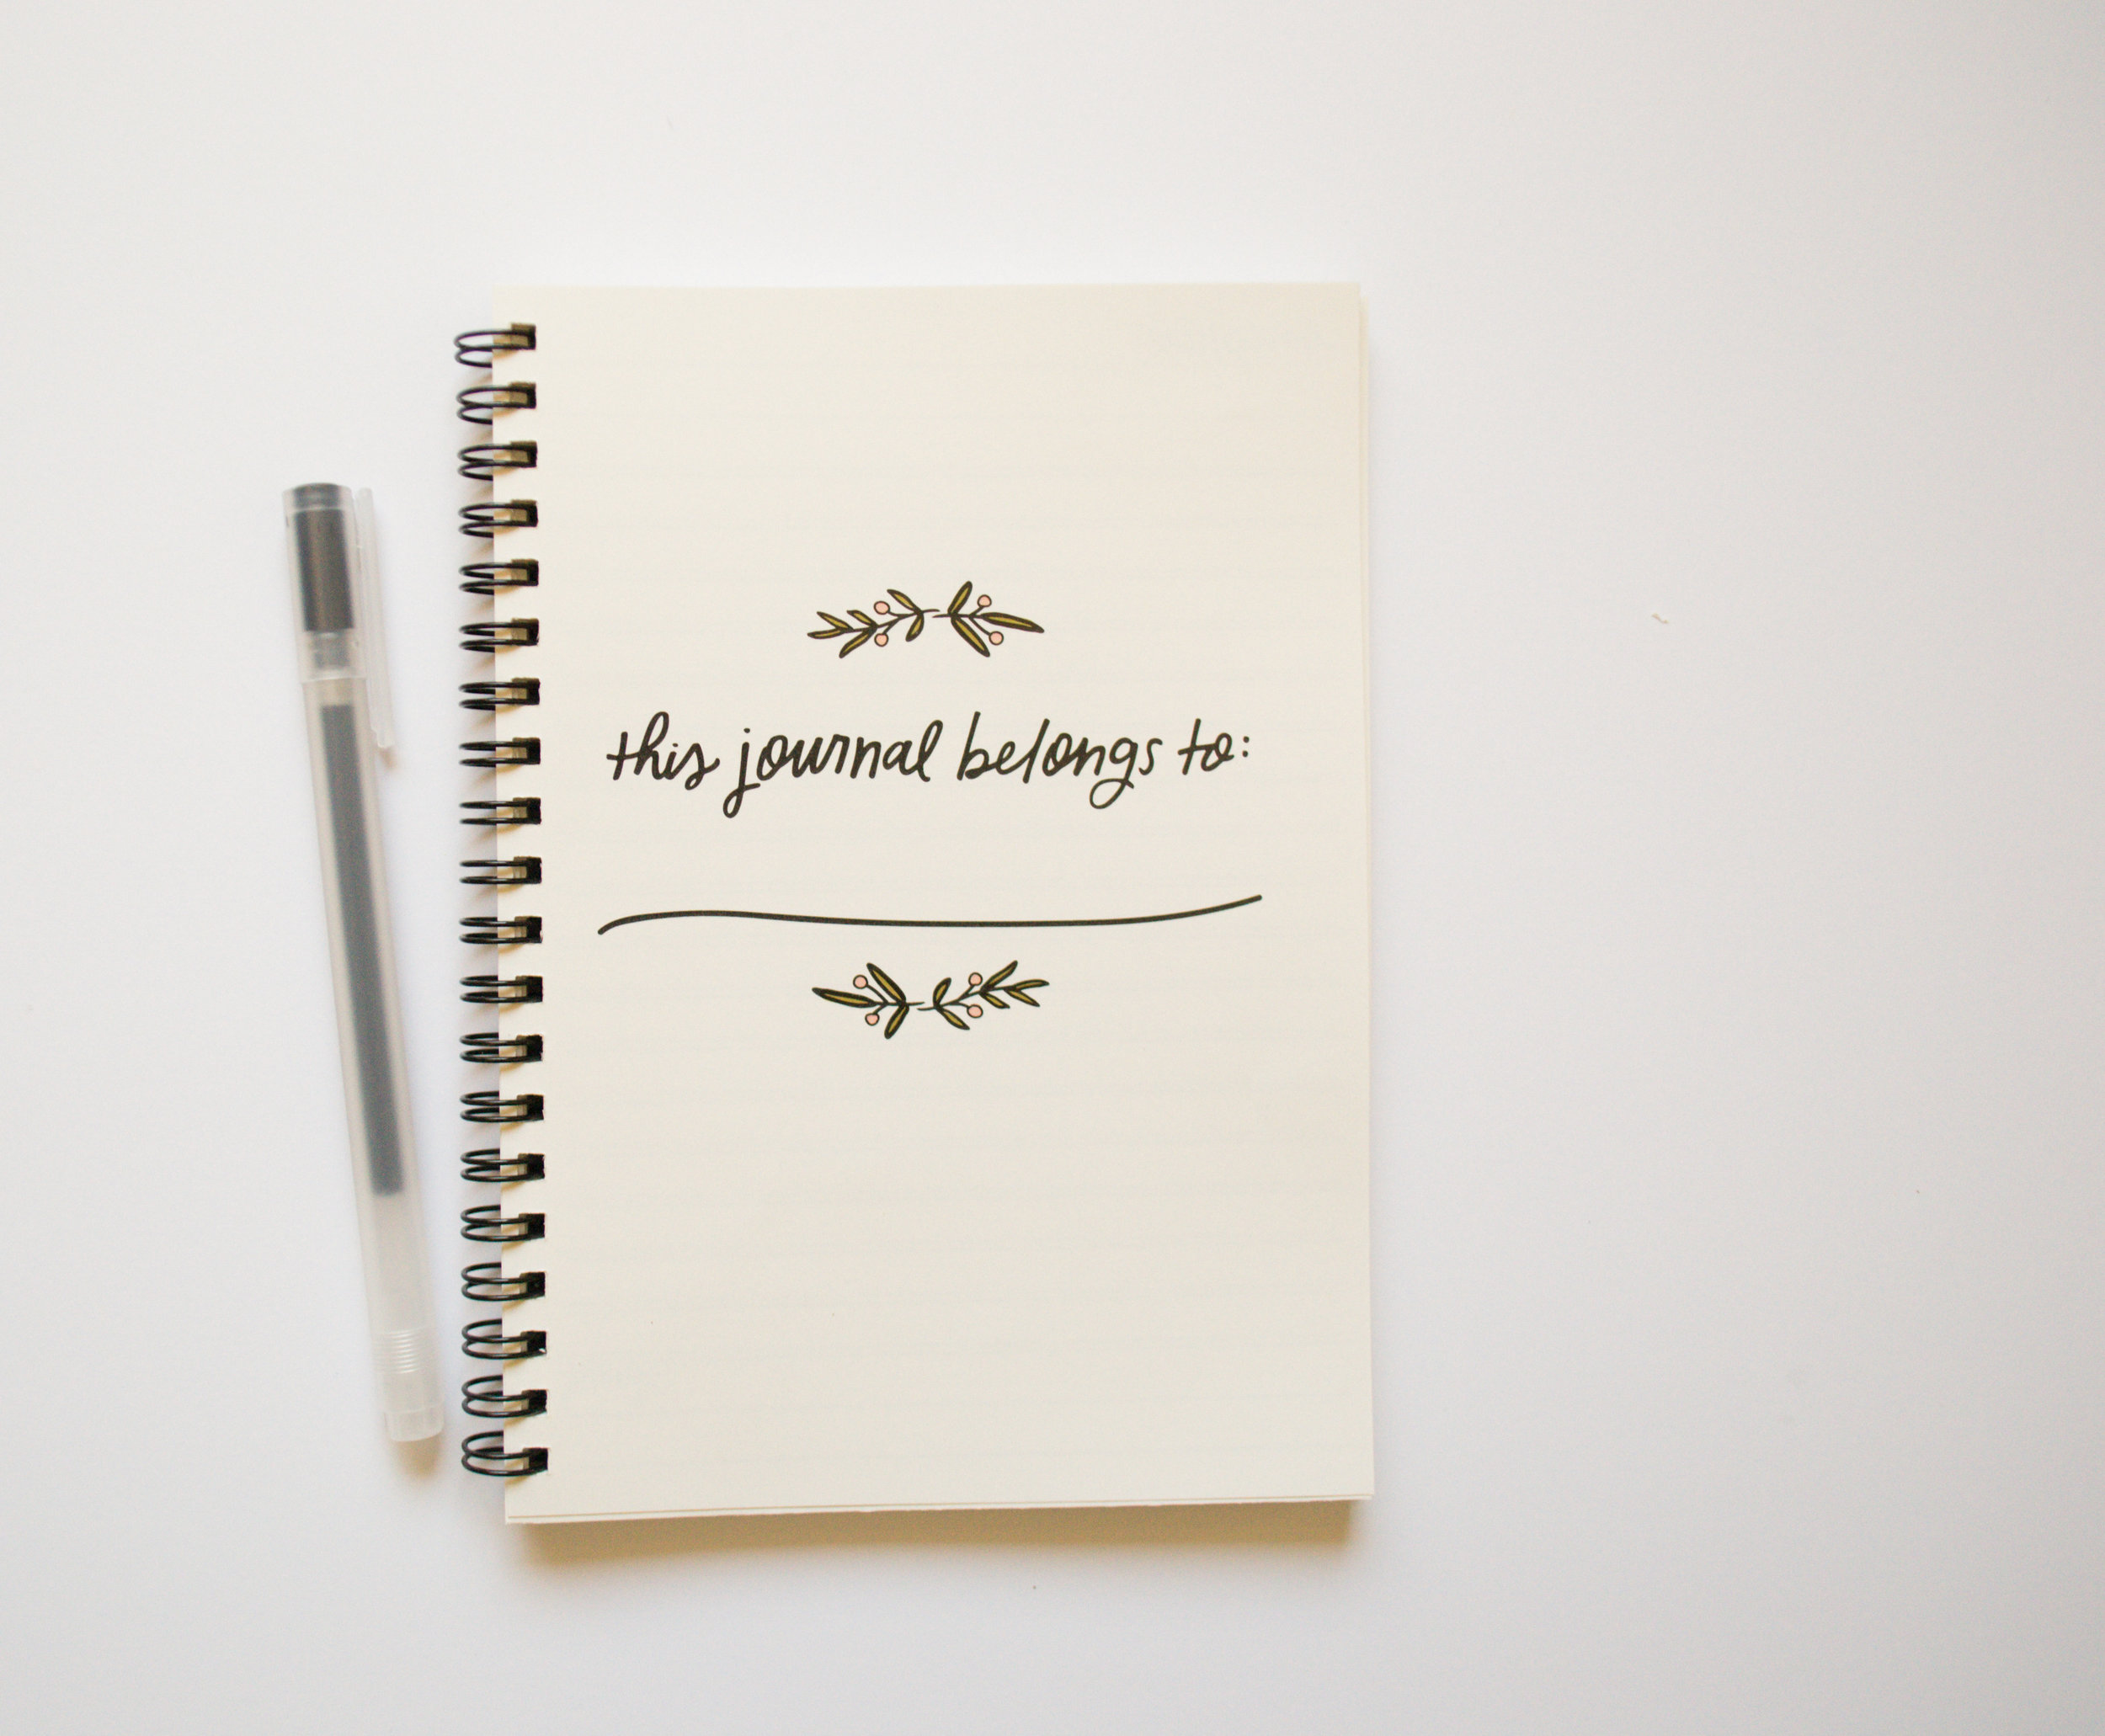 this journal belongs to: